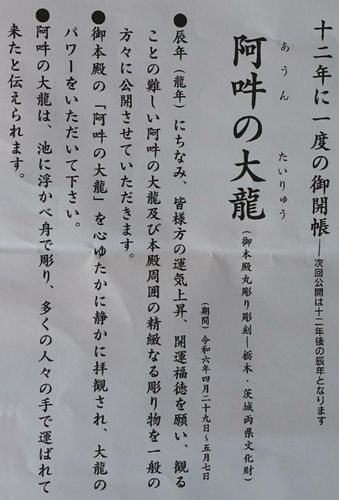 十二年に一度の御開帳―次回公開は十二年後の辰年となります
あうん　たいりゅう
阿吽の大龍（御本殿丸彫り彫刻―栃木・茨城両県文化財）
（期間）令和六年四月二十九日～五月七日
●辰年（龍年）にちなみ、皆様方の運気上昇、開運福徳を願い、観る
ことの難しい阿吽の大龍及び本殿周囲の精緻なる彫り物を一般の
方々に公開させていただきます。
●御本殿の「阿吽の大龍」を心ゆたかに静かに拝観され、大龍の
パワーをいただいて下さい。
●阿吽の大龍は、池に浮かべ舟で彫り、多くの人々の手で運ばれて
来たと伝えられます。